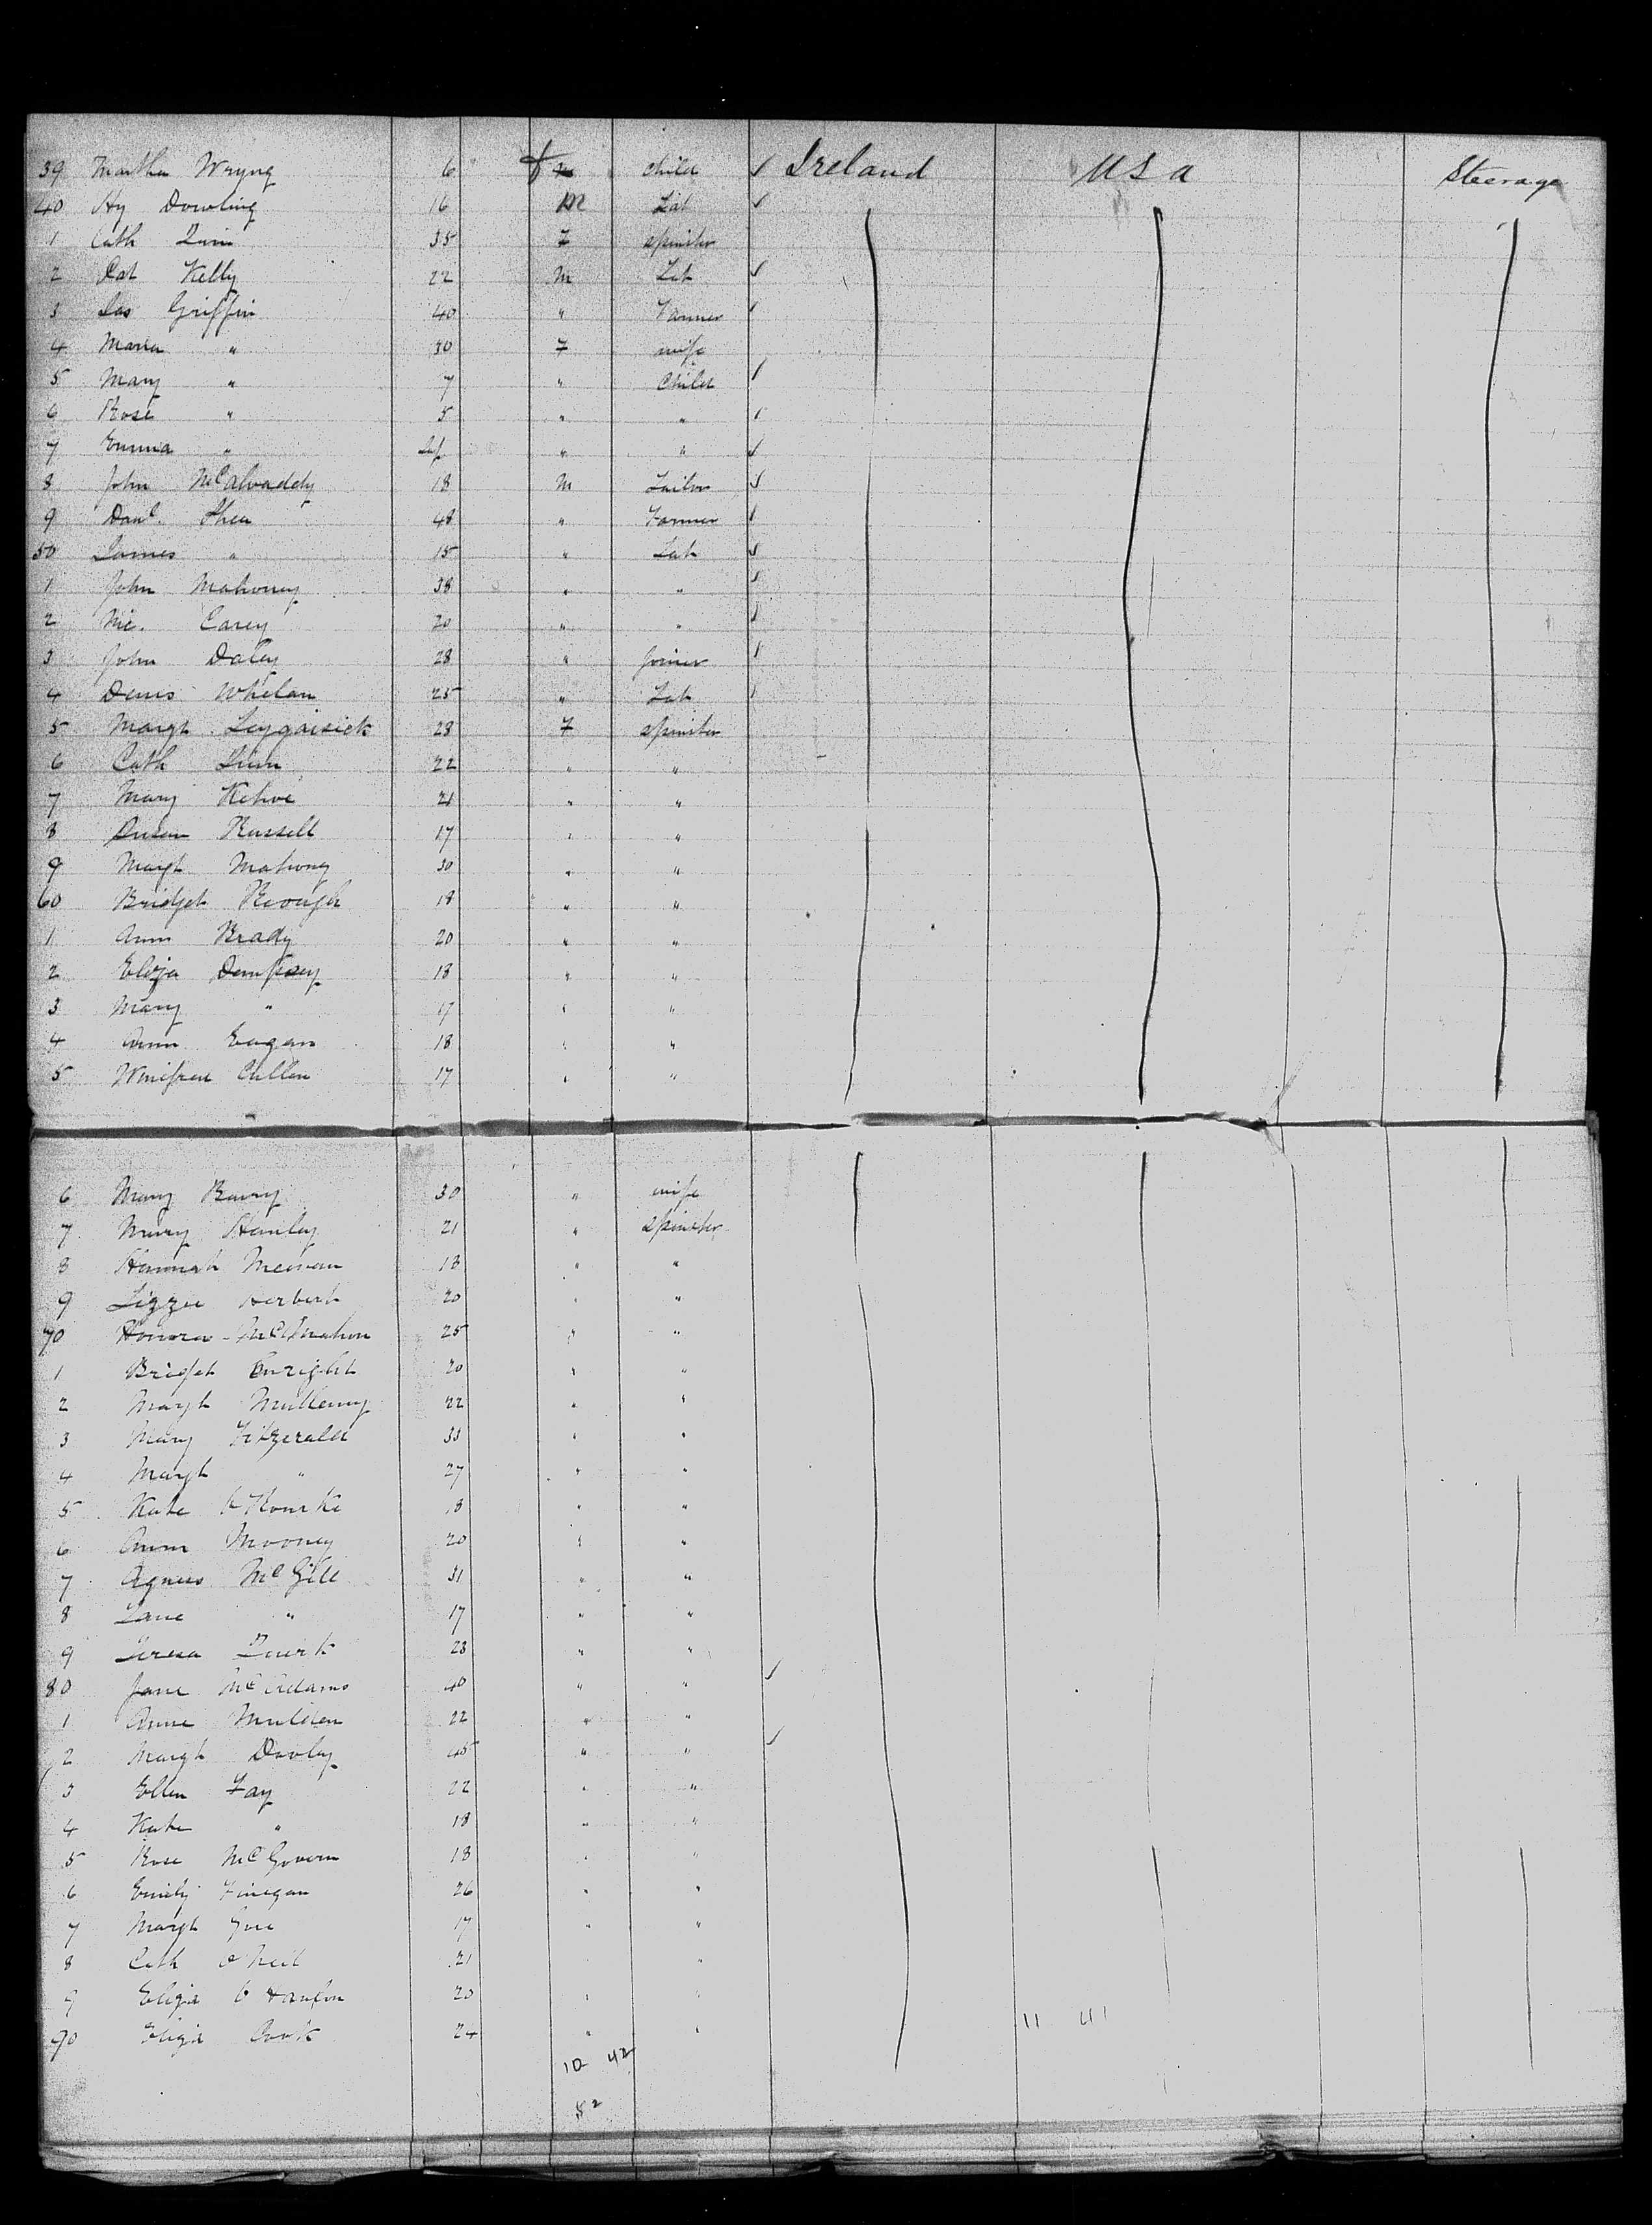 39 Martha Wryng 6 f child ✓ Ireland USA Steerage
40 Hy Dowling 16 M Lab ✓
1 Cath Quin 35 F spinster
2 Pat Kelly 22 M Lab ✓
3 Jas Griffin 40 " Farmer ✓
4 Maria " 30 F wife
5 Mary " 7 " Child ✓
6 Rose " 5 " " ✓
7 Emma " Inf " " ✓
8 John 18 M Tailor ✓
9 Danl. Shea 48 " Farmer ✓
50 James " 15 " Lab ✓
1 John Mahoney 38 " " ✓
2 Mic. Carey 20 " " ✓
3 John Daley 28 " Joiner ✓
4 Denis Whelan 25 " Lab ✓
5 Margt 28 F spinster
6 Cath 22 " "
7 Mary Kehoe 21 " "
8 Susan Russell 17 " "
9 Margt Mahony 30 " "
60 Bridget Keough 18 " "
1 Ann Brady 20 " "
2 Eliza Dempsey 18 " "
3 Mary " 17 " "
4 Ann Eagan 18 " "
5 Winifred Cullen 17 " "
6 Mary Barry 30 " wife
7 Mary Hanley 21 " spinster
8 Hannah 18 " "
9 Lizzie Herbert 20 " "
70 Honora McMahon 25 " "
1 Bridget Enright 20 " "
2 Margt 22 " "
3 Mary Fitzgerald 33 " "
4 Margt " 27 " "
5 Kate O'Rourke 18 " "
6 Ann Mooney 20 " "
7 Agness McGill 31 " "
8 Jane " 17 " "
9 Teresa Quirk 23 " "
80 Jane McAdams 40 " " ✓
1 Anne 22 " "
2 Margt Dooley 45 " " ✓
3 Ellen Fay 22 " "
4 Kate " 18 " "
5 Rose McGovern 18 " "
6 Emily Finegan 26 " "
7 Margt 17 " "
8 Cath O'Neil 21 "
9 Eliza O'Hanlon 20 " "
90 Eliza Cook 24 " " 11 41
10 42
52